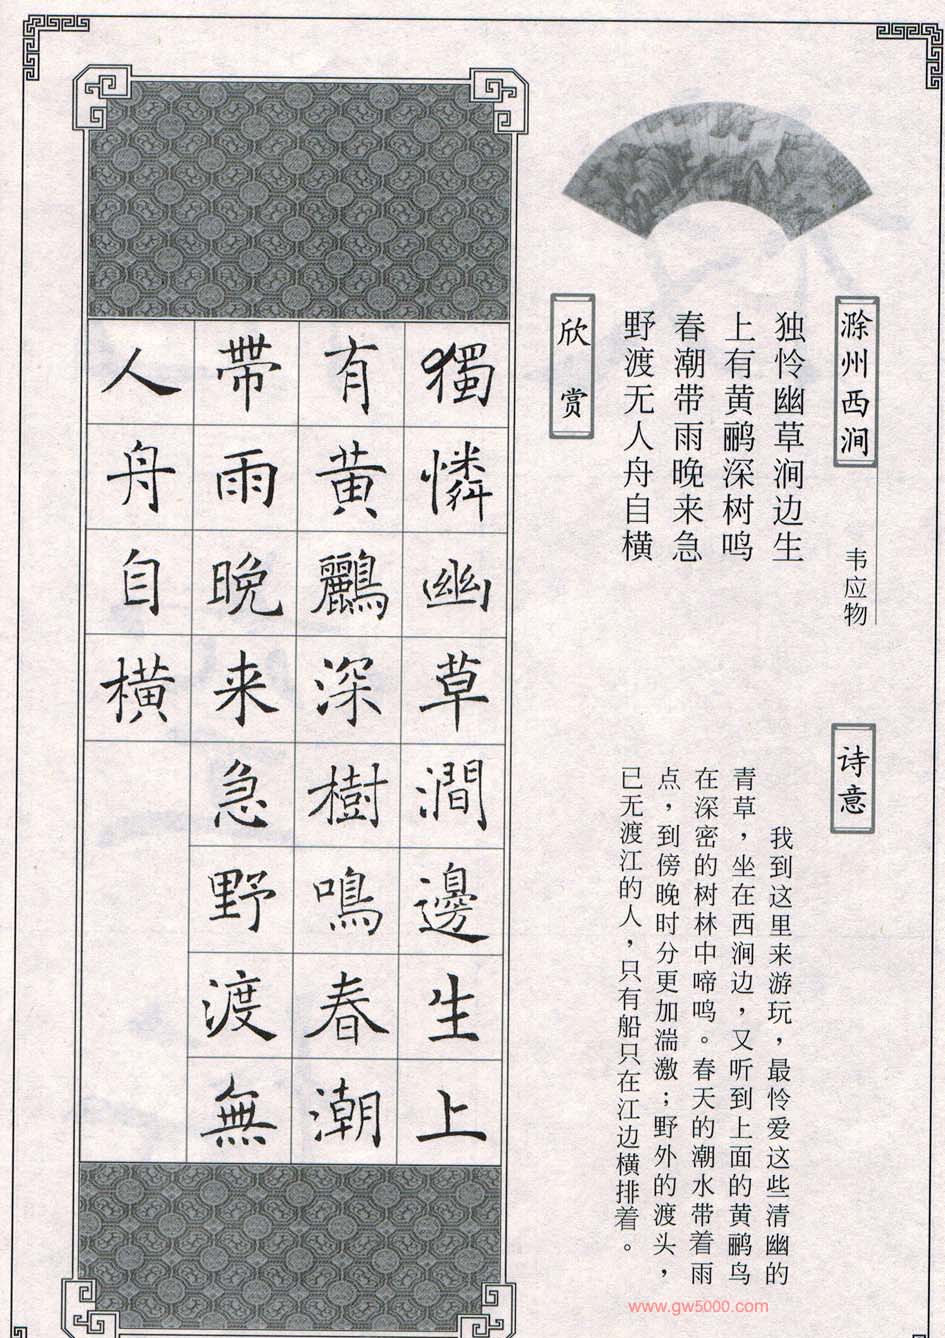 滁州西涧
韦应物
独怜幽草涧边生
上有黄鹂深树鸣
春潮带雨晚来急
野渡无人舟自横
诗意
我到这里来游玩，最怜爱这些清幽的
青草，坐在西涧边，又听到上面的黄鹂鸟
在深密的树林中啼鸣。春天的潮水带着雨
点，到傍晚时分更加湍激；野外的渡头，
已无渡江的人，只有船只在江边横排着。
欣赏
獨憐幽草澗邊生上
有黄鸝深樹鳴春潮
帶雨晚来急野渡無
人舟自橫
www.gw5000.com